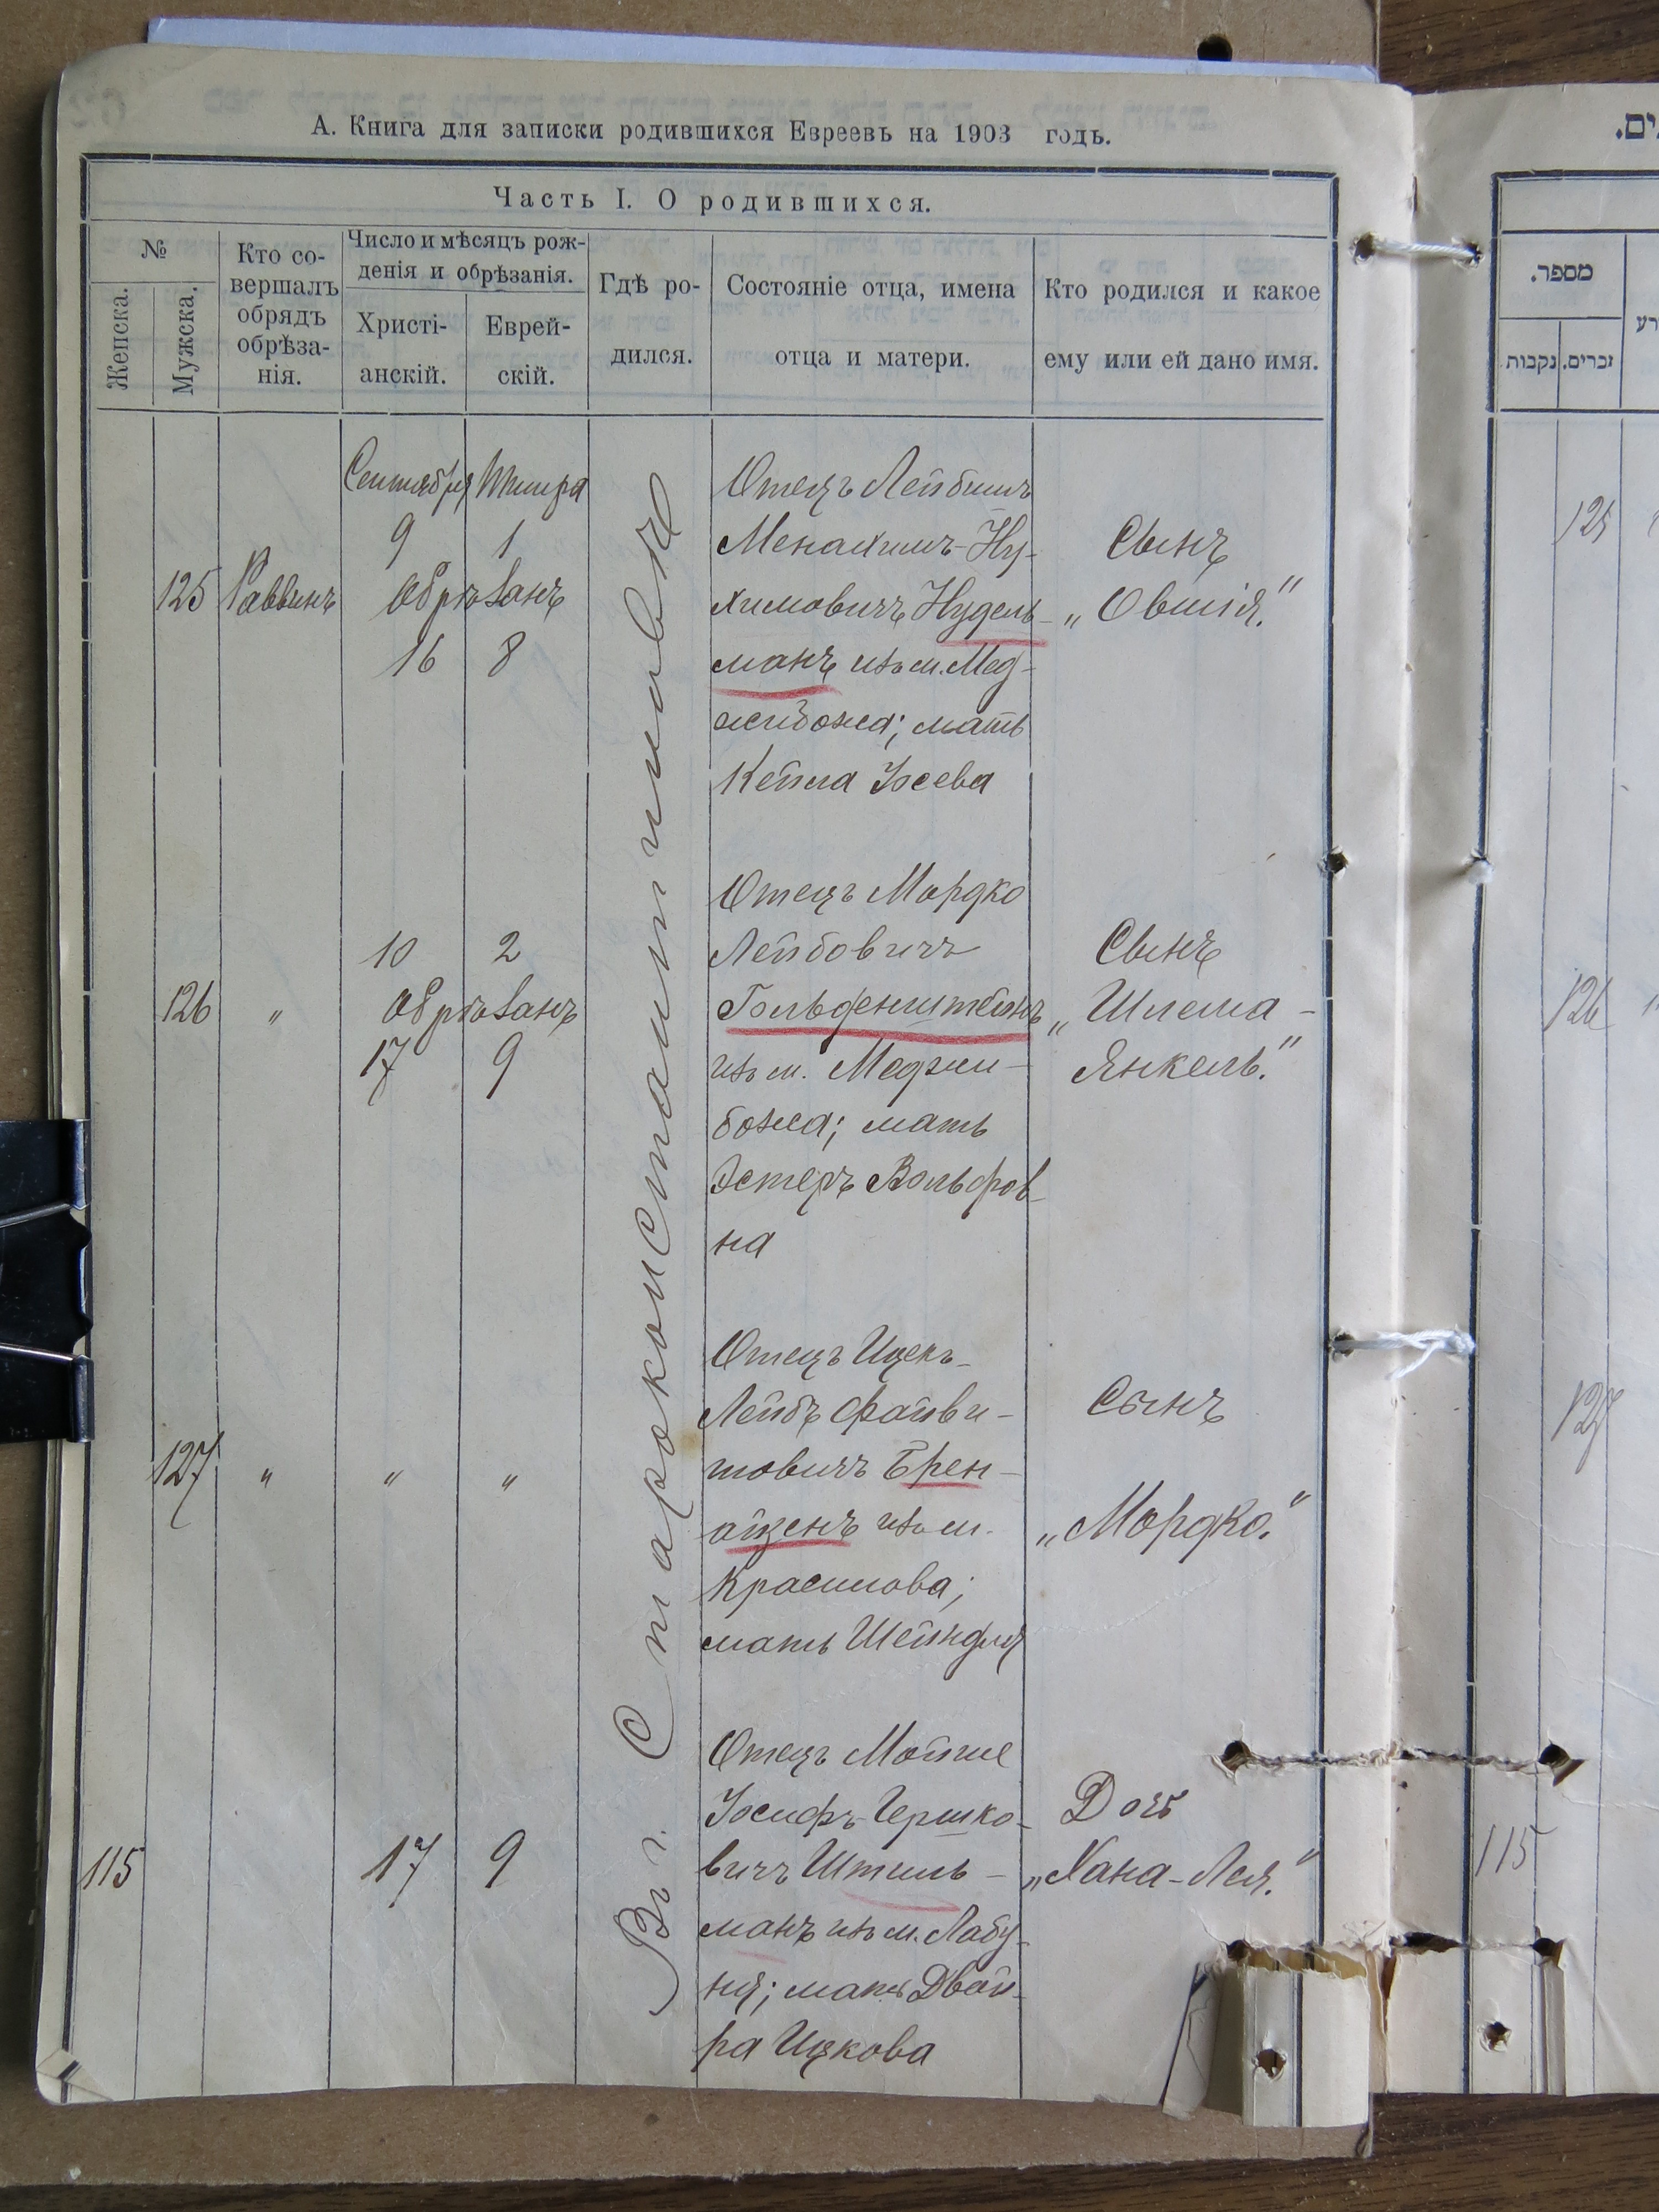 А. Книга для записки родившихся Евреевъ на 1903 годъ.
Часть I. О родившихся.
№
Женска.
Мужска.
Кто со-
вершалъ
обрядъ
обрѣза-
нія.
Число и мѣсяцъ рож-
денія и обрѣзанія.
Христі-
анскій.
Еврей-
скій.
Гдѣ ро-
дился.
Состояніе отца, имена
отца и матери.
Кто родился и какое
ему или ей дано имя.
Въ г. Староконстантиновѣ
Сентября Тишра
9 1
125 Раввинъ Обрѣзанъ
16 8
Отецъ Лейбишъ
Менахимъ-Ну-
химовичъ Нудель-
манъ изъ м. Мед-
жибожа; мать
Кейла Іосева
Сынъ
„Овшія."
10 2
126 „ Обрѣзанъ
17 9
Отецъ Мордко
Лейбовичъ
Гольденштейнъ
изъ м. Меджи-
божа; мать
Эстеръ Вольфов-
на
Сынъ
„Шлема-
Янкель."
127 „ „ „
Отецъ Ицекъ-
Лейбъ Файви-
товичъ Брен-
айзенъ изъ м.
Красилова;
мать Шейндля
Сынъ
„Мордко."
115 17 9
Отецъ Мойше
Іосифъ Гершко-
вичъ Штиль-
манъ изъ м. Лабу-
ня; мать Двой-
ра Ицкова
Дочь
„Хана-Лея."
ים.
מספר.
נקבות
זכרים.
125
126
127
115